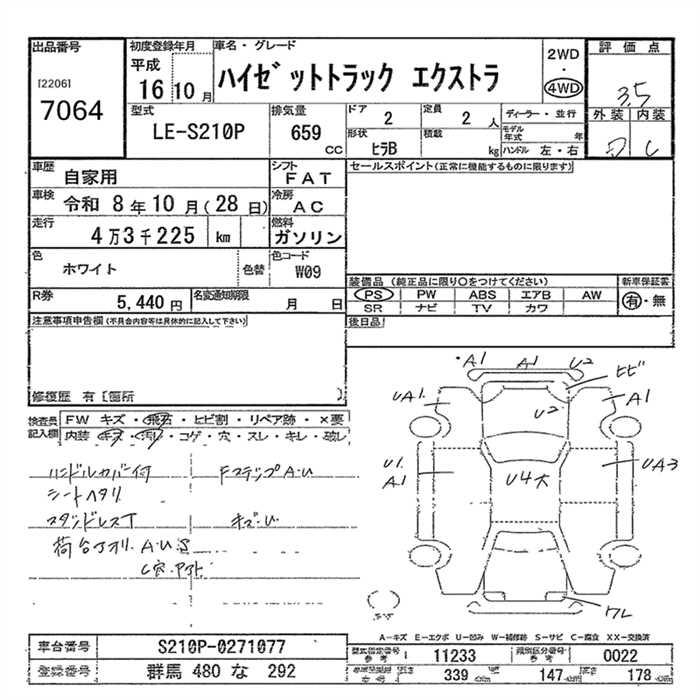 出品番号
[2206]
7064
初度登録年月
平成
16 10 月
車名・グレード
ハイゼットトラック エクストラ
2WD
・
4WD
評価点
3.5
外装 内装
D C
型式
LE-S210P
排気量
659
CC
ドア
2
定員
2 人
形状
ヒラB
積載
kg
ディーラー・並行
モデル
年式
年
ハンドル 左・右
車歴
自家用
シフト
FAT
車検
令和 8 年 10 月 ( 28 日)
冷房
AC
走行
4 万 3 千 225 km
燃料
ガソリン
色
ホワイト
色替
色コード
W09
R券
5,440 円
名変通知期限
月 日
セールスポイント (正常に機能するものに限ります)
装備品 (純正品に限り○をつけてください)
PS PW ABS エアB AW
SR ナビ TV カワ
新車保証書
有・無
後日品
注意事項申告欄 (不具合内容等は具体的に記入して下さい)
修復歴 有 [箇所 ]
検査員
記入欄
FW キズ・飛石・ヒビ割・リペア跡・×要
内装 キズ・汚レ・コゲ・穴・スレ・キレ・破レ
ハンドルカバー付
シートヘタリ
スタッドレスT
荷台アオリ. A・U・S
C穴・アト.
FステップA・U
キズ・U
・A1 A1 U2
ヒビ
UA1.
A1
U2
U1.
A1
U4大
UA3
ワレ
A-キズ E-エクボ U-凹み W-補修跡 S-サビ C-腐食 XX-交換済
車台番号
S210P-0271077
登録番号
群馬 480 な 292
型式指定番号
参考
11233
類別区分番号
参考
0022
長さ
339 cm
幅
147 cm
高さ
178 cm